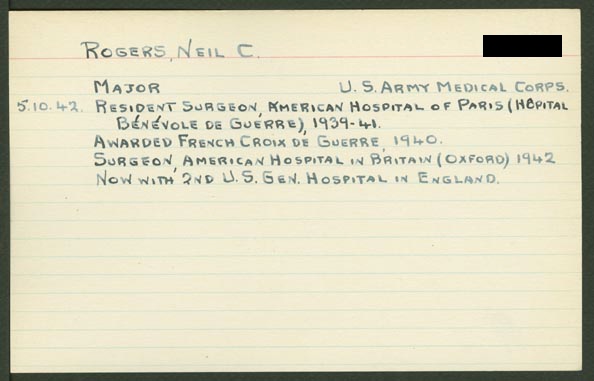 ROGERS, NEIL C.
MAJOR U.S. ARMY MEDICAL CORPS.
5.10.42. RESIDENT SURGEON, AMERICAN HOSPITAL OF PARIS (HÔPITAL
BÉNÉVOLE DE GUERRE), 1939-41.
AWARDED FRENCH CROIX DE GUERRE, 1940.
SURGEON, AMERICAN HOSPITAL IN BRITAIN (OXFORD) 1942
NOW WITH 2ND U.S. GEN. HOSPITAL IN ENGLAND.